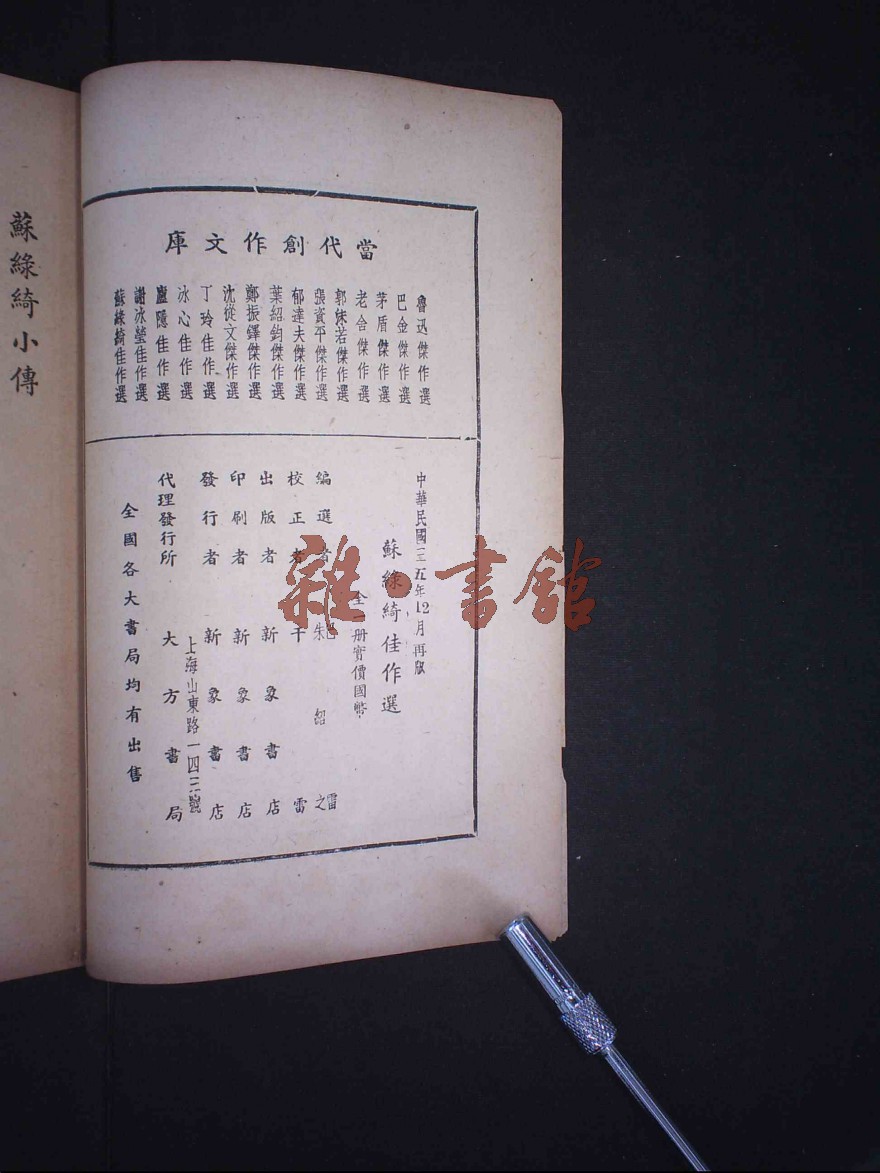 當代創作文庫
魯迅傑作選
巴金傑作選
茅盾傑作選
老舍傑作選
郭沫若傑作選
張資平傑作選
郁達夫傑作選
葉紹鈞傑作選
鄭振鐸傑作選
沈從文傑作選
丁玲佳作選
冰心佳作選
廬隱佳作選
謝冰瑩佳作選
蘇綠綺佳作選
中華民國三五年12月再版
蘇綠綺佳作選
全一册實價國幣
編選者 巴雷 朱紹之
校正者 干雷
出版者 新象書店
印刷者 新象書店
發行者 新象書店
上海山東路一四二號
代理發行所 大方書局
全國各大書局均有出售
蘇綠綺小傳
雜·書館